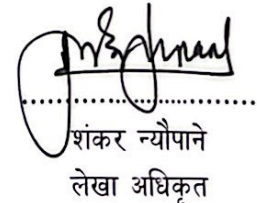 शंकर न्यौपाने
लेखा अधिकृत